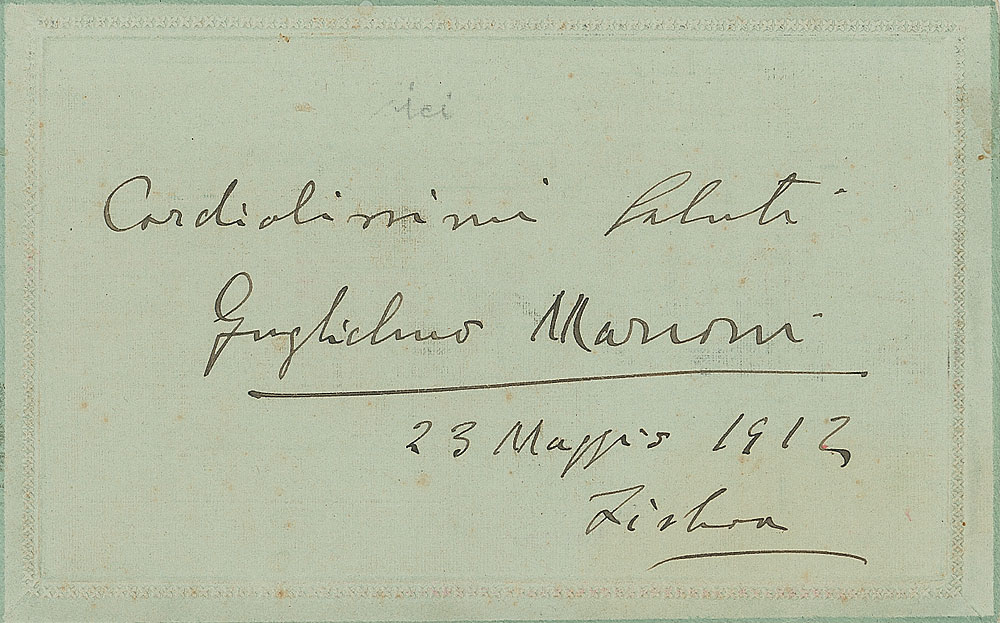 ici
Cordialissimi Saluti
Guglielmo Marconi
23 Maggio 1912
Lisbona